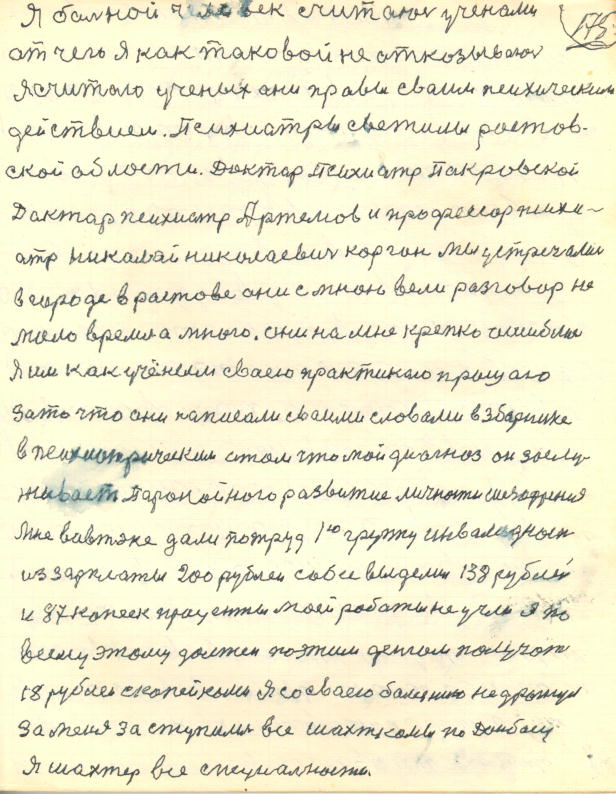 Я балной человек считают ученами
175
от чего я как таковой не отказываюс
я считаю ученых ани правы сваим психическим
действием. Психиатры светилы ростов-
ской области. Доктар психиатр Пакровской
Дактар психиатр Артемов и профессор психи-
атр Николай николаевич корган мы устречалис
в городе в растове они с мною вели разговор не
мало времиа много. они на мне крепко ошиблис
Я им как учёным сваею практикаю прощаю
за то что они написали сваими словами в збарнике
в психиотрическим о том что мой диагноз он заслу-
живает. Паранойного развитие личности
Мне вавтэке дали потруд 1ю групу
из зарплаты 200 рублей собес выделил 138 рублей
и 87 копеек праценты моей работы не учли я по
всему этому должен поэтим денгам получат
18 рублей скопейками Я со сваею
за меня заступилис все по Донбасу
Я шахтер все специалности.